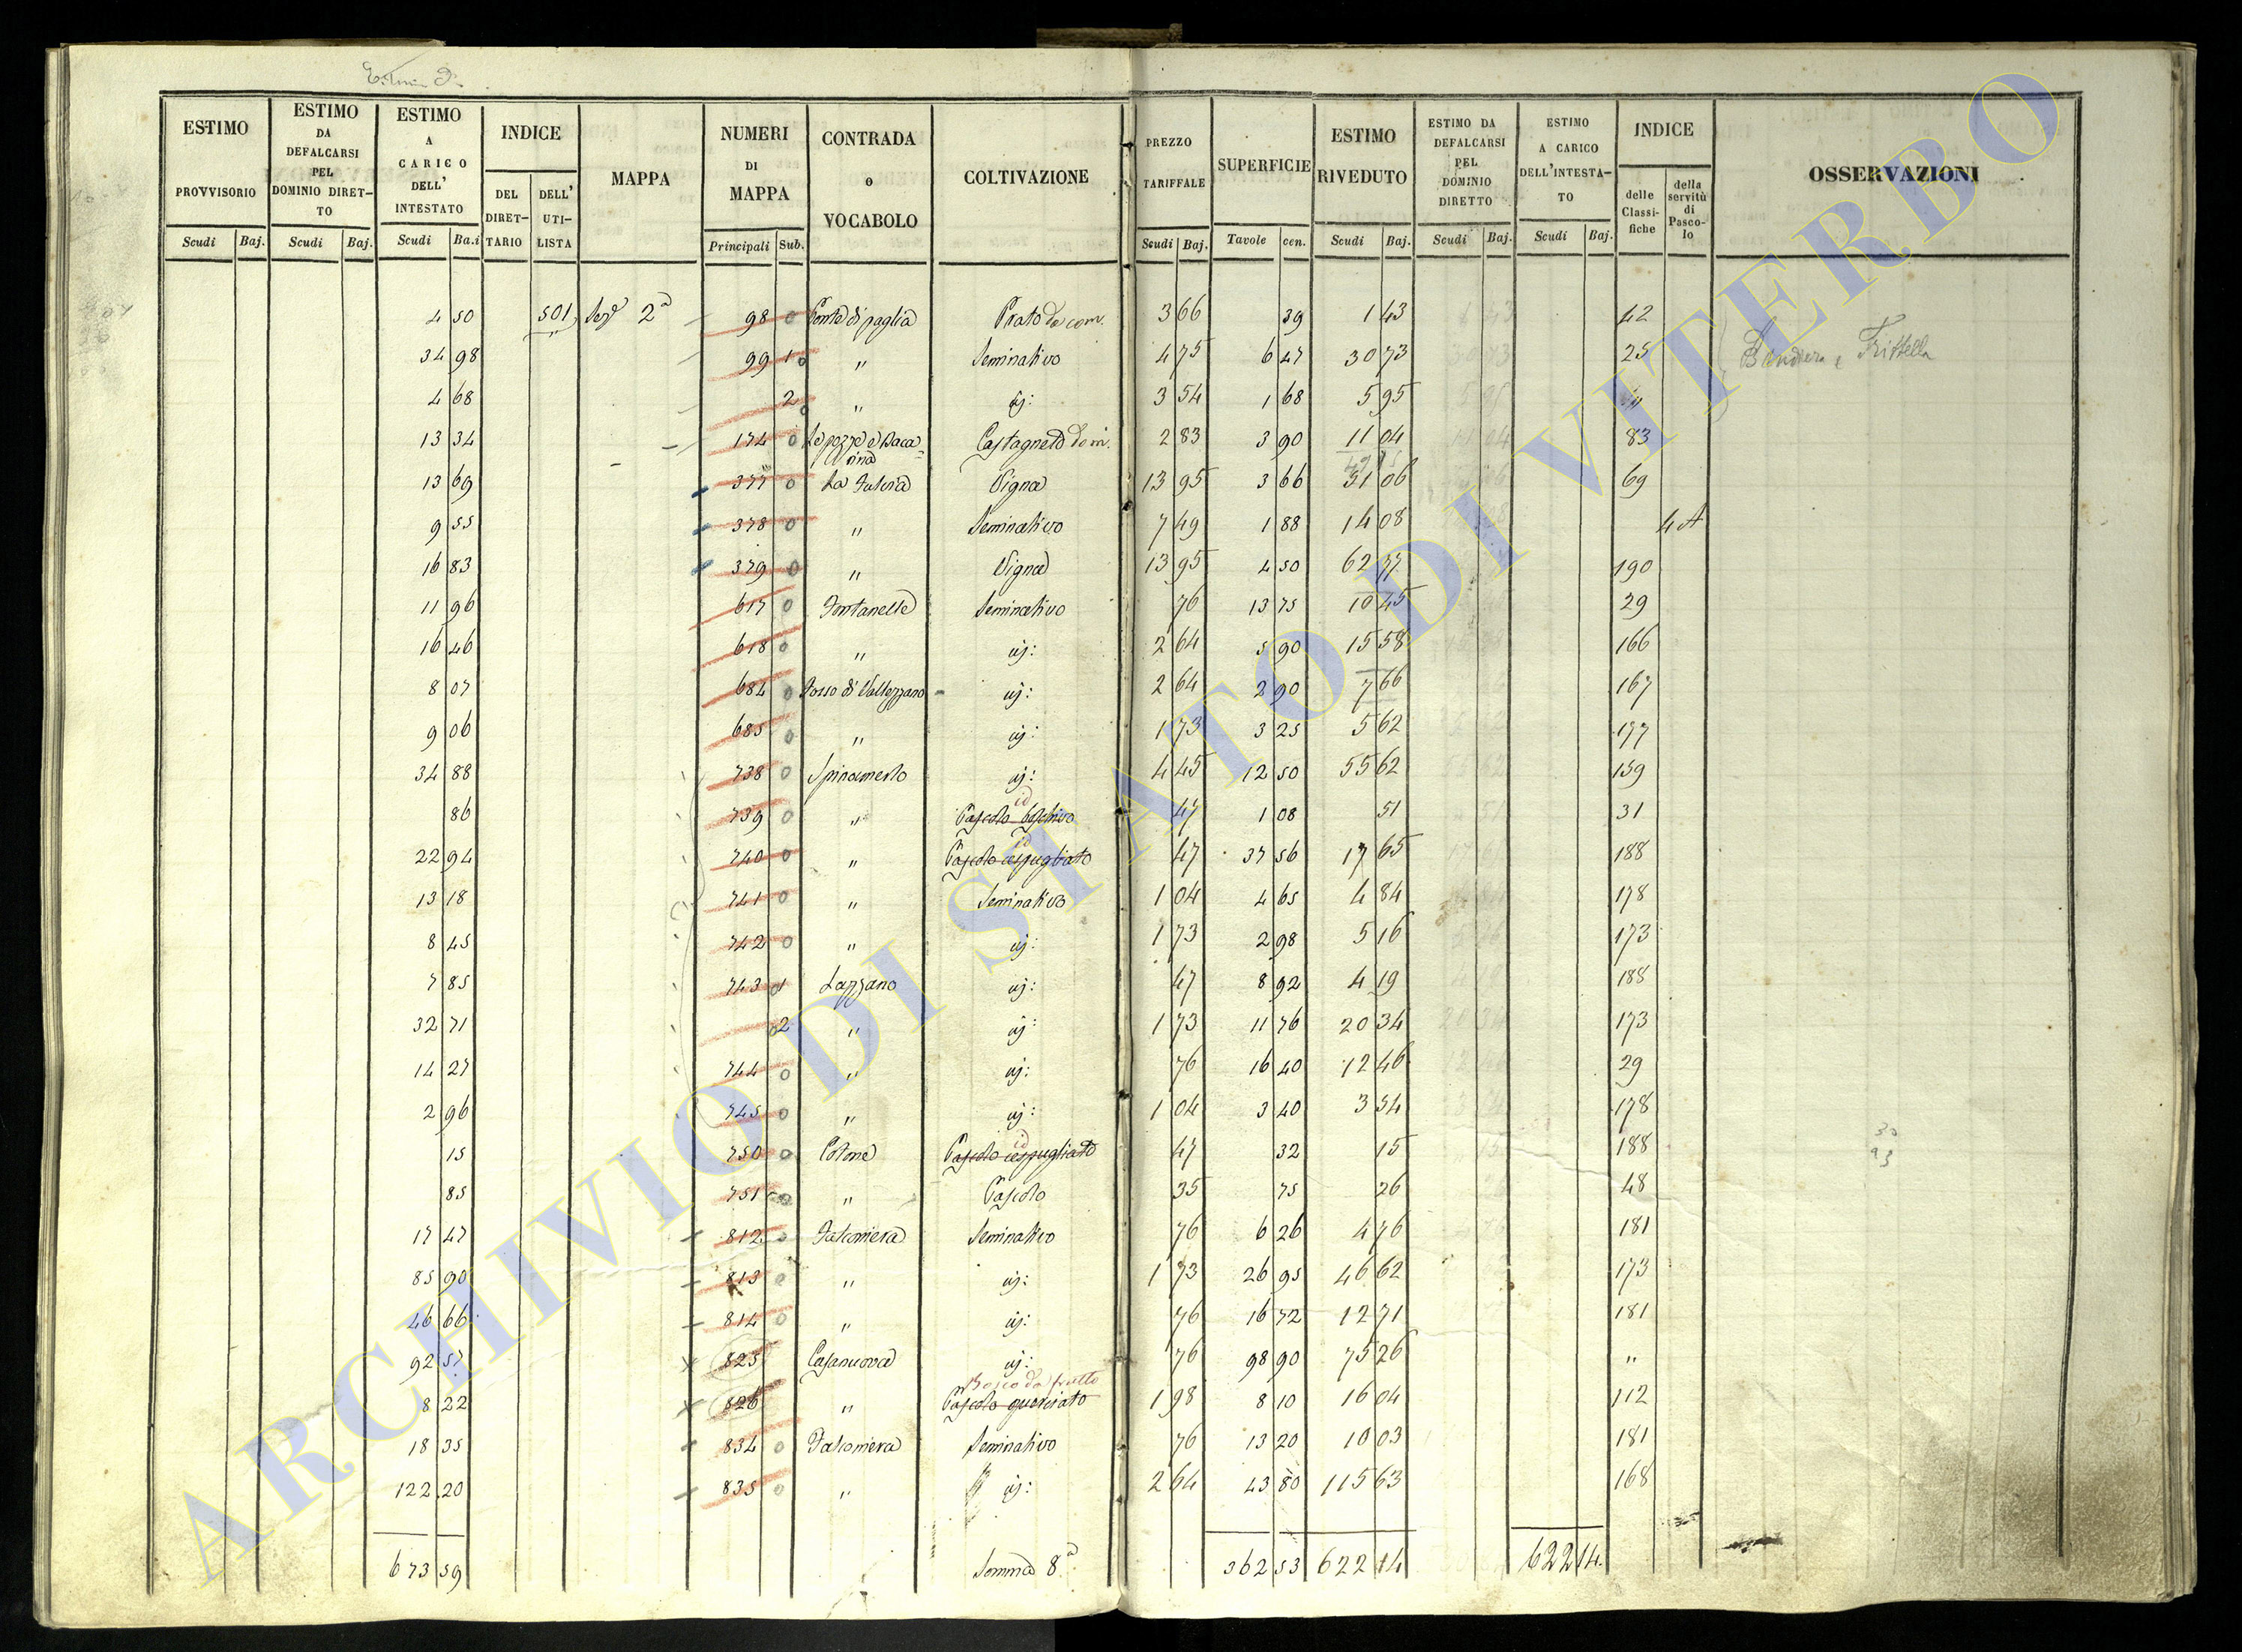 ESTIMO PROVVISORIO Scudi Baj.
ESTIMO DA DEFALCARSI PEL DOMINIO DIRETTO Scudi Baj.
ESTIMO A CARICO DELL' INTESTATO Scudi Ba.i
INDICE DEL DIRETTARIO DELL' UTILISTA
MAPPA
NUMERI DI MAPPA Principali Sub.
CONTRADA o VOCABOLO
COLTIVAZIONE
PREZZO TARIFFALE Scudi Baj.
SUPERFICIE Tavole cen.
ESTIMO RIVEDUTO Scudi Baj.
ESTIMO DA DEFALCARSI PEL DOMINIO DIRETTO Scudi Baj.
ESTIMO A CARICO DELL'INTESTATO Scudi Baj.
INDICE delle Classifiche della servitù di Pascolo
OSSERVAZIONI
4 50 501 Sez 2a 98 0 Ponte di paglia Prato 3 66 39 1 43 42
34 98 99 1 0 " Seminativo 4 75 6 47 30 73 25 Bandiera e Frittella
4 68 2 0 " uj: 3 54 1 68 5 95 "
13 34 174 0 Castagneto 2 83 3 90 11 04 83
13 69 377 0 Vigna 13 95 3 66 51 06 69
9 55 378 0 " Seminativo 7 49 1 88 14 08 4 A
16 83 379 0 " Vigna 13 95 4 50 62 77 190
11 96 617 0 Fontanelle Seminativo 76 13 75 10 45 29
16 46 618 0 " uj: 2 64 5 90 15 58 166
8 07 684 0 Fosso di Valtezzano uj: 2 64 2 90 7 66 167
9 06 685 0 " uj: 1 73 3 25 5 62 177
34 88 738 0 Spinamesto uj: 4 45 12 50 55 62 159
86 739 0 " Pascolo boschivo id 47 1 08 51 31
22 94 740 0 " Pascolo cespugliato id 47 37 56 17 65 188
13 18 741 0 " Seminativo 1 04 4 65 4 84 178
8 45 742 0 " uj: 1 73 2 98 5 16 173
7 85 743 1 Lazzano uj: 47 8 92 4 19 188
32 71 2 " uj: 1 73 11 76 20 34 173
14 27 744 0 " uj: 76 16 40 12 46 29
2 96 745 0 " uj: 1 04 3 40 3 54 178
15 750 0 Colone Pascolo cespugliato id 47 32 15 188
85 751 " Pascolo 35 75 26 48
17 47 812 0 Falconiera Seminativo 76 6 26 4 76 181
85 90 813 0 " uj: 1 73 26 95 46 62 173
46 66 814 0 " uj: 76 16 72 12 71 181
92 57 825 Casanuova uj: 76 98 90 75 26 "
Bosco da frutto
8 22 826 " Pascolo querciato 1 98 8 10 16 04 112
18 35 834 0 Falconiera Seminativo 76 13 20 10 03 181
122 20 835 0 " uj: 2 64 43 80 115 63 168
673 59 Somma 8a 362 53 622 14 622 14
ARCHIVIO DI STATO DI VITERBO